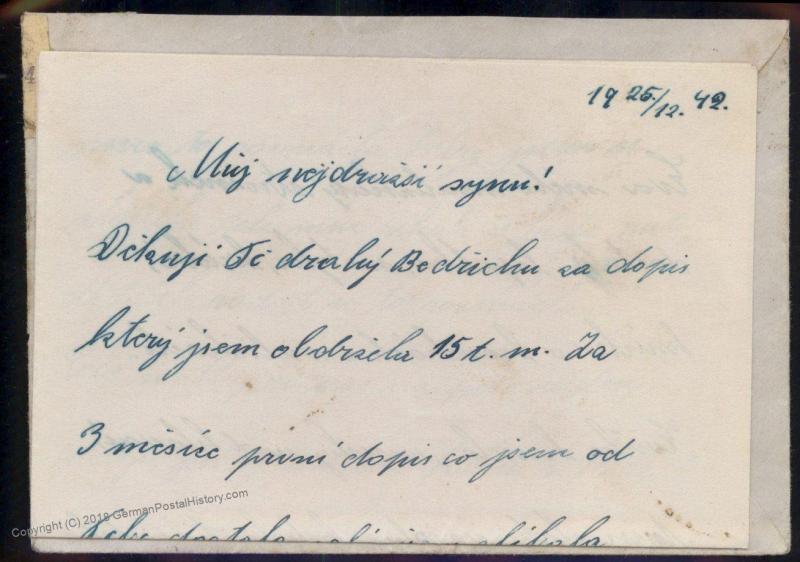 19 25./12. 42.
Můj nejdražší synu!
Děkuji Ti drahý Bedřichu za dopis
který jsem obdržela 15 t. m. Za
3 měsíce první dopis co jsem od
Tebe dostala
Copyright (C) 2018 GermanPostalHistory.com